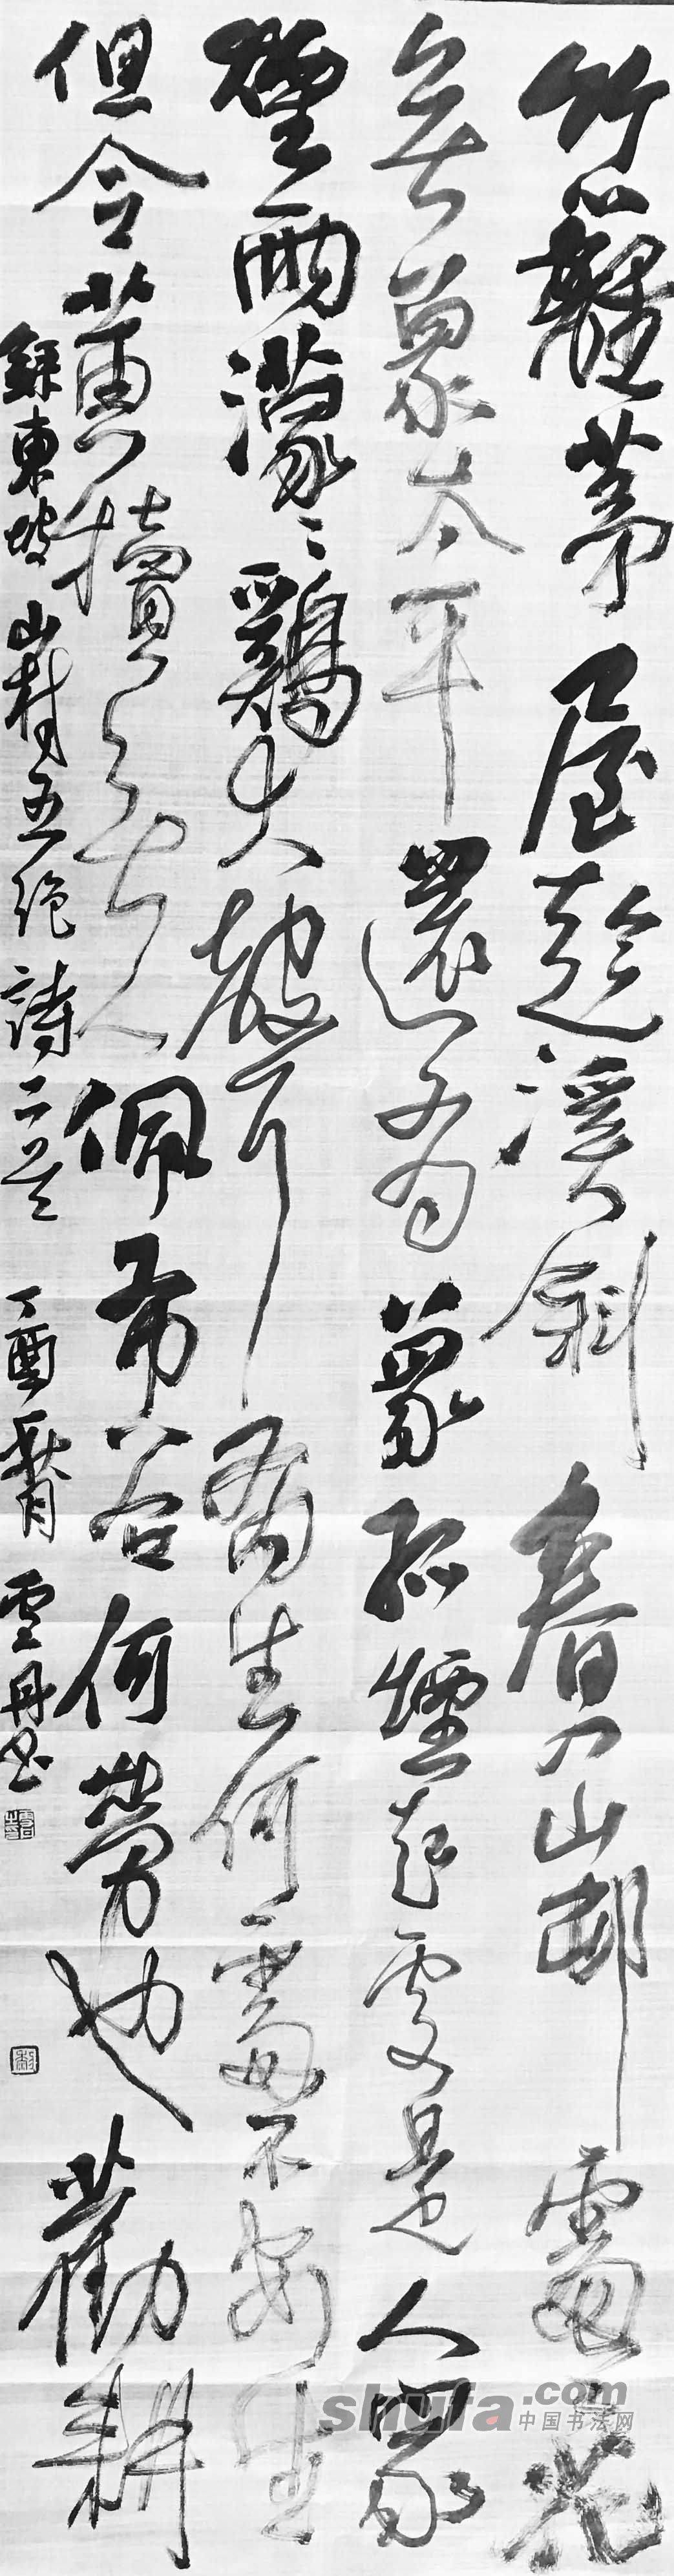 竹籬茅屋趁溪斜春入山邨處々花
無象太平還有象孤煙起處是人家
煙雨濛々鷄犬聲有生何處不安生
但令黃犢無人佩布谷何勞也勸耕
録東坡山村五絕詩二首 丁酉秋月 雲丹書
shufa.com
中国书法网